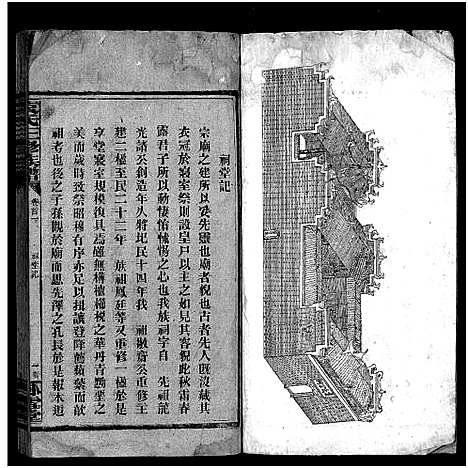 祠堂記
宗廟之建所以妥先靈也廟者貌也古者先人既沒藏其
衣冠於寢室祭則設皇尸以主之如見其容貌此秋霜春
露君子所以動悽愴惕之心也我族祠宇自 先祖龍
光諸公創造年久將圮民十四年我 祖 公重修主
建二極至民二十二年 族祖鳳廷等又重修一極於是
享堂寢室規模復具為雖無構櫨節梲之華丹青黝堊之
美而歲時致祭昭穆有序亦足以拙讓登降薦蘋蘩而獻
祖考也後之子孫觀於廟而思先澤之孔長於是報本追
氏三修族譜
卷首
祠堂記